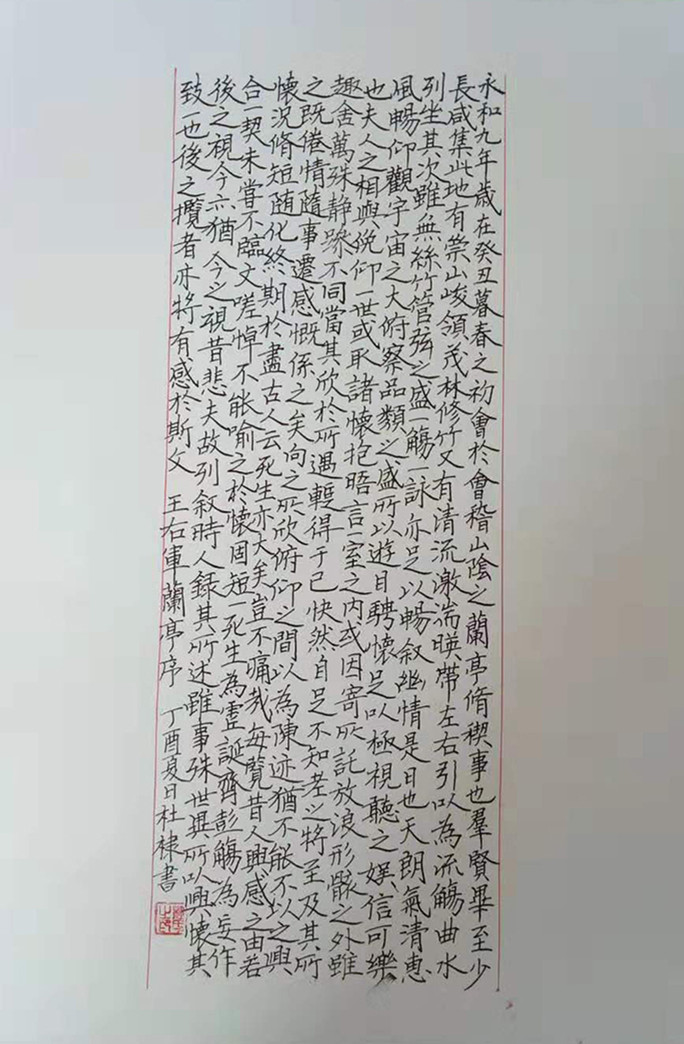 永和九年歲在癸丑暮春之初會於會稽山陰之蘭亭脩稧事也羣賢畢至少
長咸集此地有崇山峻領茂林修竹又有清流激湍暎帶左右引以為流觴曲水
列坐其次雖無絲竹管弦之盛一觴一詠亦足以暢叙幽情是日也天朗氣清惠
風暢仰觀宇宙之大俯察品類之盛所以遊目騁懷足以極視聽之娛信可樂
也夫人之相與俛仰一世或取諸懷抱晤言一室之內或因寄所託放浪形骸之外雖
趣舍萬殊静躁不同當其欣於所遇輕得于己快然自足不知老之將至及其所
之既倦情隨事遷感慨係之矣向之所欣俯仰之間以為陳迹猶不能不以之興
懷況脩短随化終期於盡古人云死生亦大矣豈不痛哉每覽昔人興感之由若
合一契未嘗不臨文嗟悼不能喻之於懷固短一死生為虛誕齊彭觴為妄作
後之視今亦猶今之視昔悲夫故列叙時人録其所述雖事殊世異所以興懷其
致一也後之攬者亦將有感於斯文 王右軍蘭亭序 丁酉夏日杜棣書